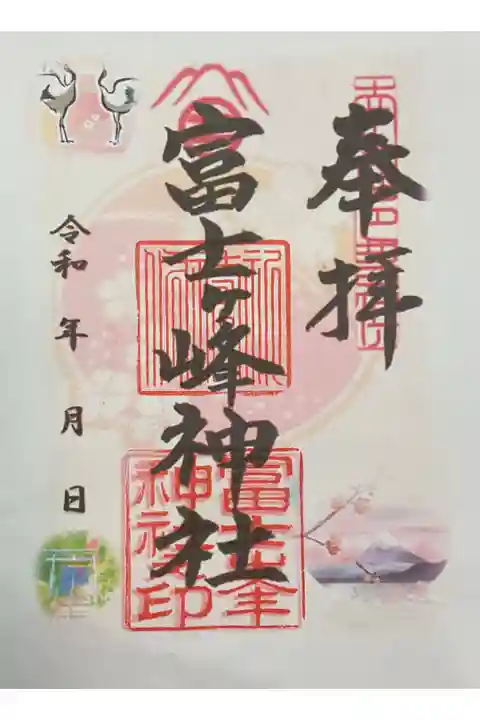 奉拝
富士ヶ峰神社
令和 年 月 日
富士ヶ峯
神社之印